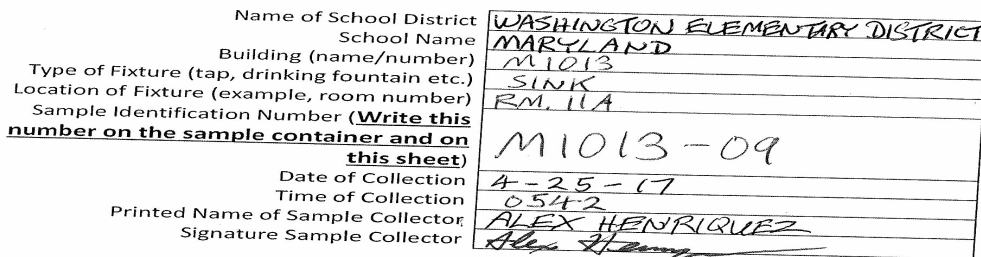 Name of School District WASHINGTON ELEMENTARY DISTRICT
School Name MARYLAND
Building (name/number) M1013
Type of Fixture (tap, drinking fountain etc.) SINK
Location of Fixture (example, room number) RM. 11A
Sample Identification Number (Write this
number on the sample container and on
this sheet) M1013-09
Date of Collection 4-25-17
Time of Collection 0542
Printed Name of Sample Collector ALEX HENRIQUEZ
Signature Sample Collector Alex